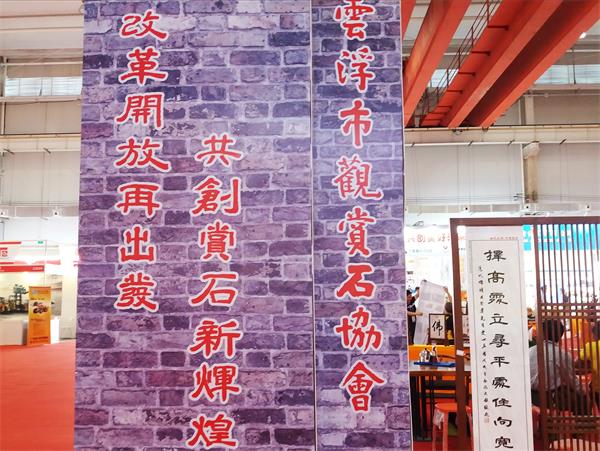 改革開放再出發
共創賞石新煇煌
雲浮市觀賞石協會
擇高處立尋平處住向寬
佛